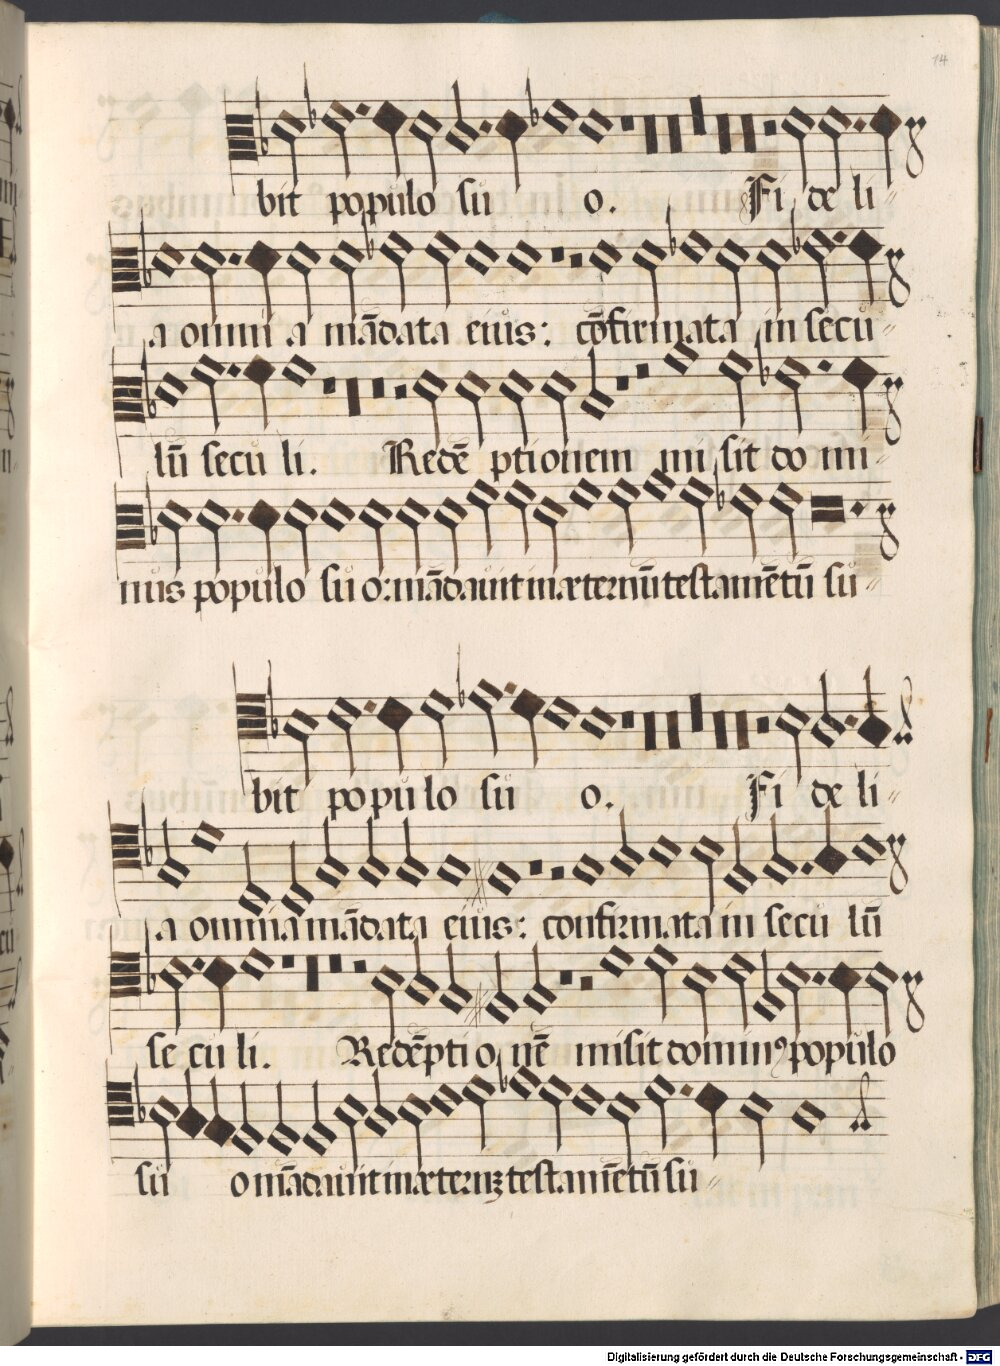 14
bit populo su o. Fi de li
a omni a mādata eius: cōfirmata in secu
lū secu li. Redē ptionem mi sit do mi
nus populo su o: mādauit in æternū testamētū su
bit po pu lo su o. Fi de li
a omnia mādata eius: confirmata in secu lū
se cu li. Redēptio nē misit dominꝰ populo
su o mādauit in æternꝫ testamētū su
Digitalisierung gefördert durch die Deutsche Forschungsgemeinschaft - DFG